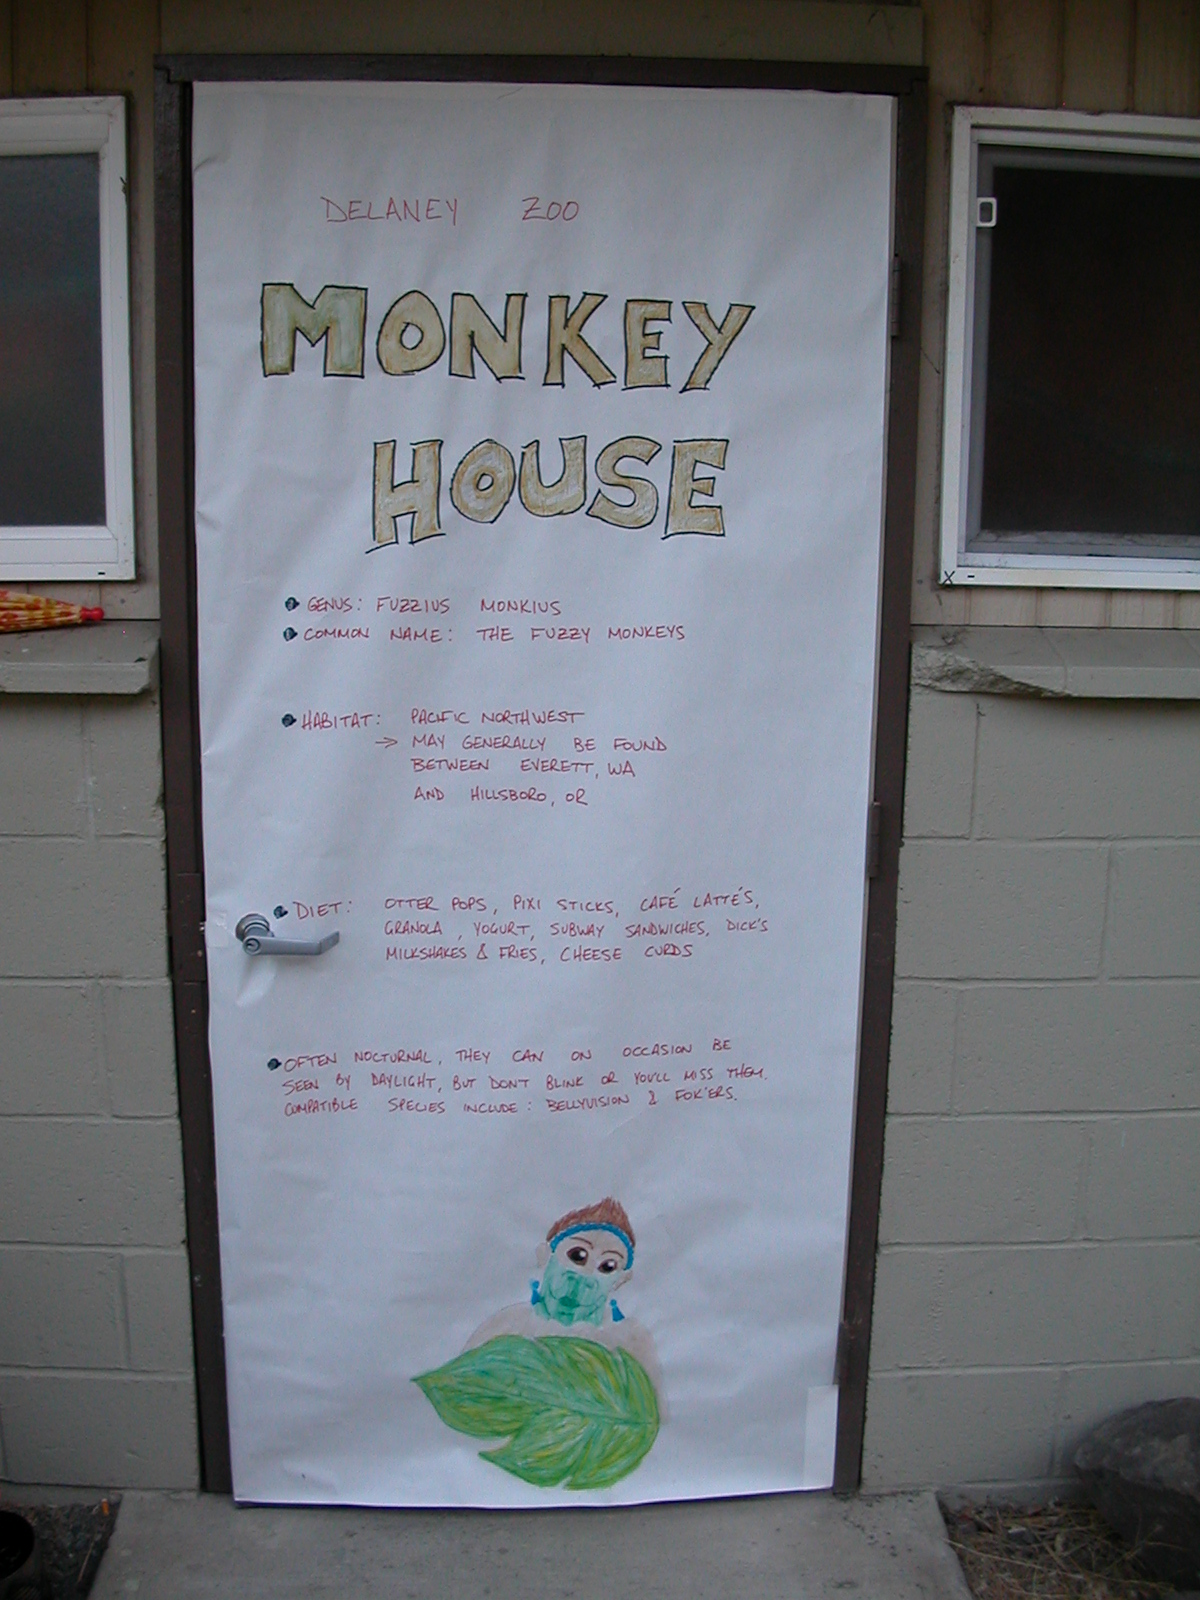 DELANEY ZOO
MONKEY
HOUSE
GENUS: FUZZIUS MONKIUS
COMMON NAME: THE FUZZY MONKEYS
HABITAT: PACIFIC NORTHWEST
→ MAY GENERALLY BE FOUND
BETWEEN EVERETT, WA
AND HILLSBORO, OR
DIET: OTTER POPS, PIXI STICKS, CAFÉ LATTÉ'S,
GRANOLA, YOGURT, SUBWAY SANDWICHES, DICK'S
MILKSHAKES & FRIES, CHEESE CURDS
OFTEN NOCTURNAL, THEY CAN ON OCCASION BE
SEEN BY DAYLIGHT, BUT DON'T BLINK OR YOU'LL MISS THEM.
COMPATIBLE SPECIES INCLUDE: BELLYVISION & FOK'ERS.